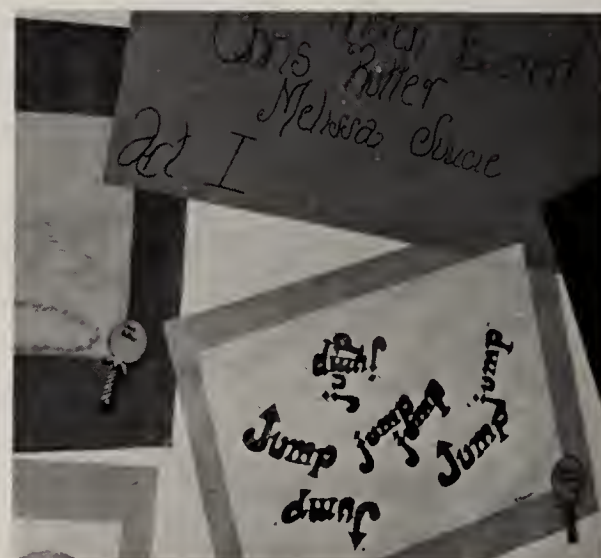 Chris Rutter
Melissa Soucie
Art I
jump
jump
jump
Jump
jump
jump
Jump
Jump